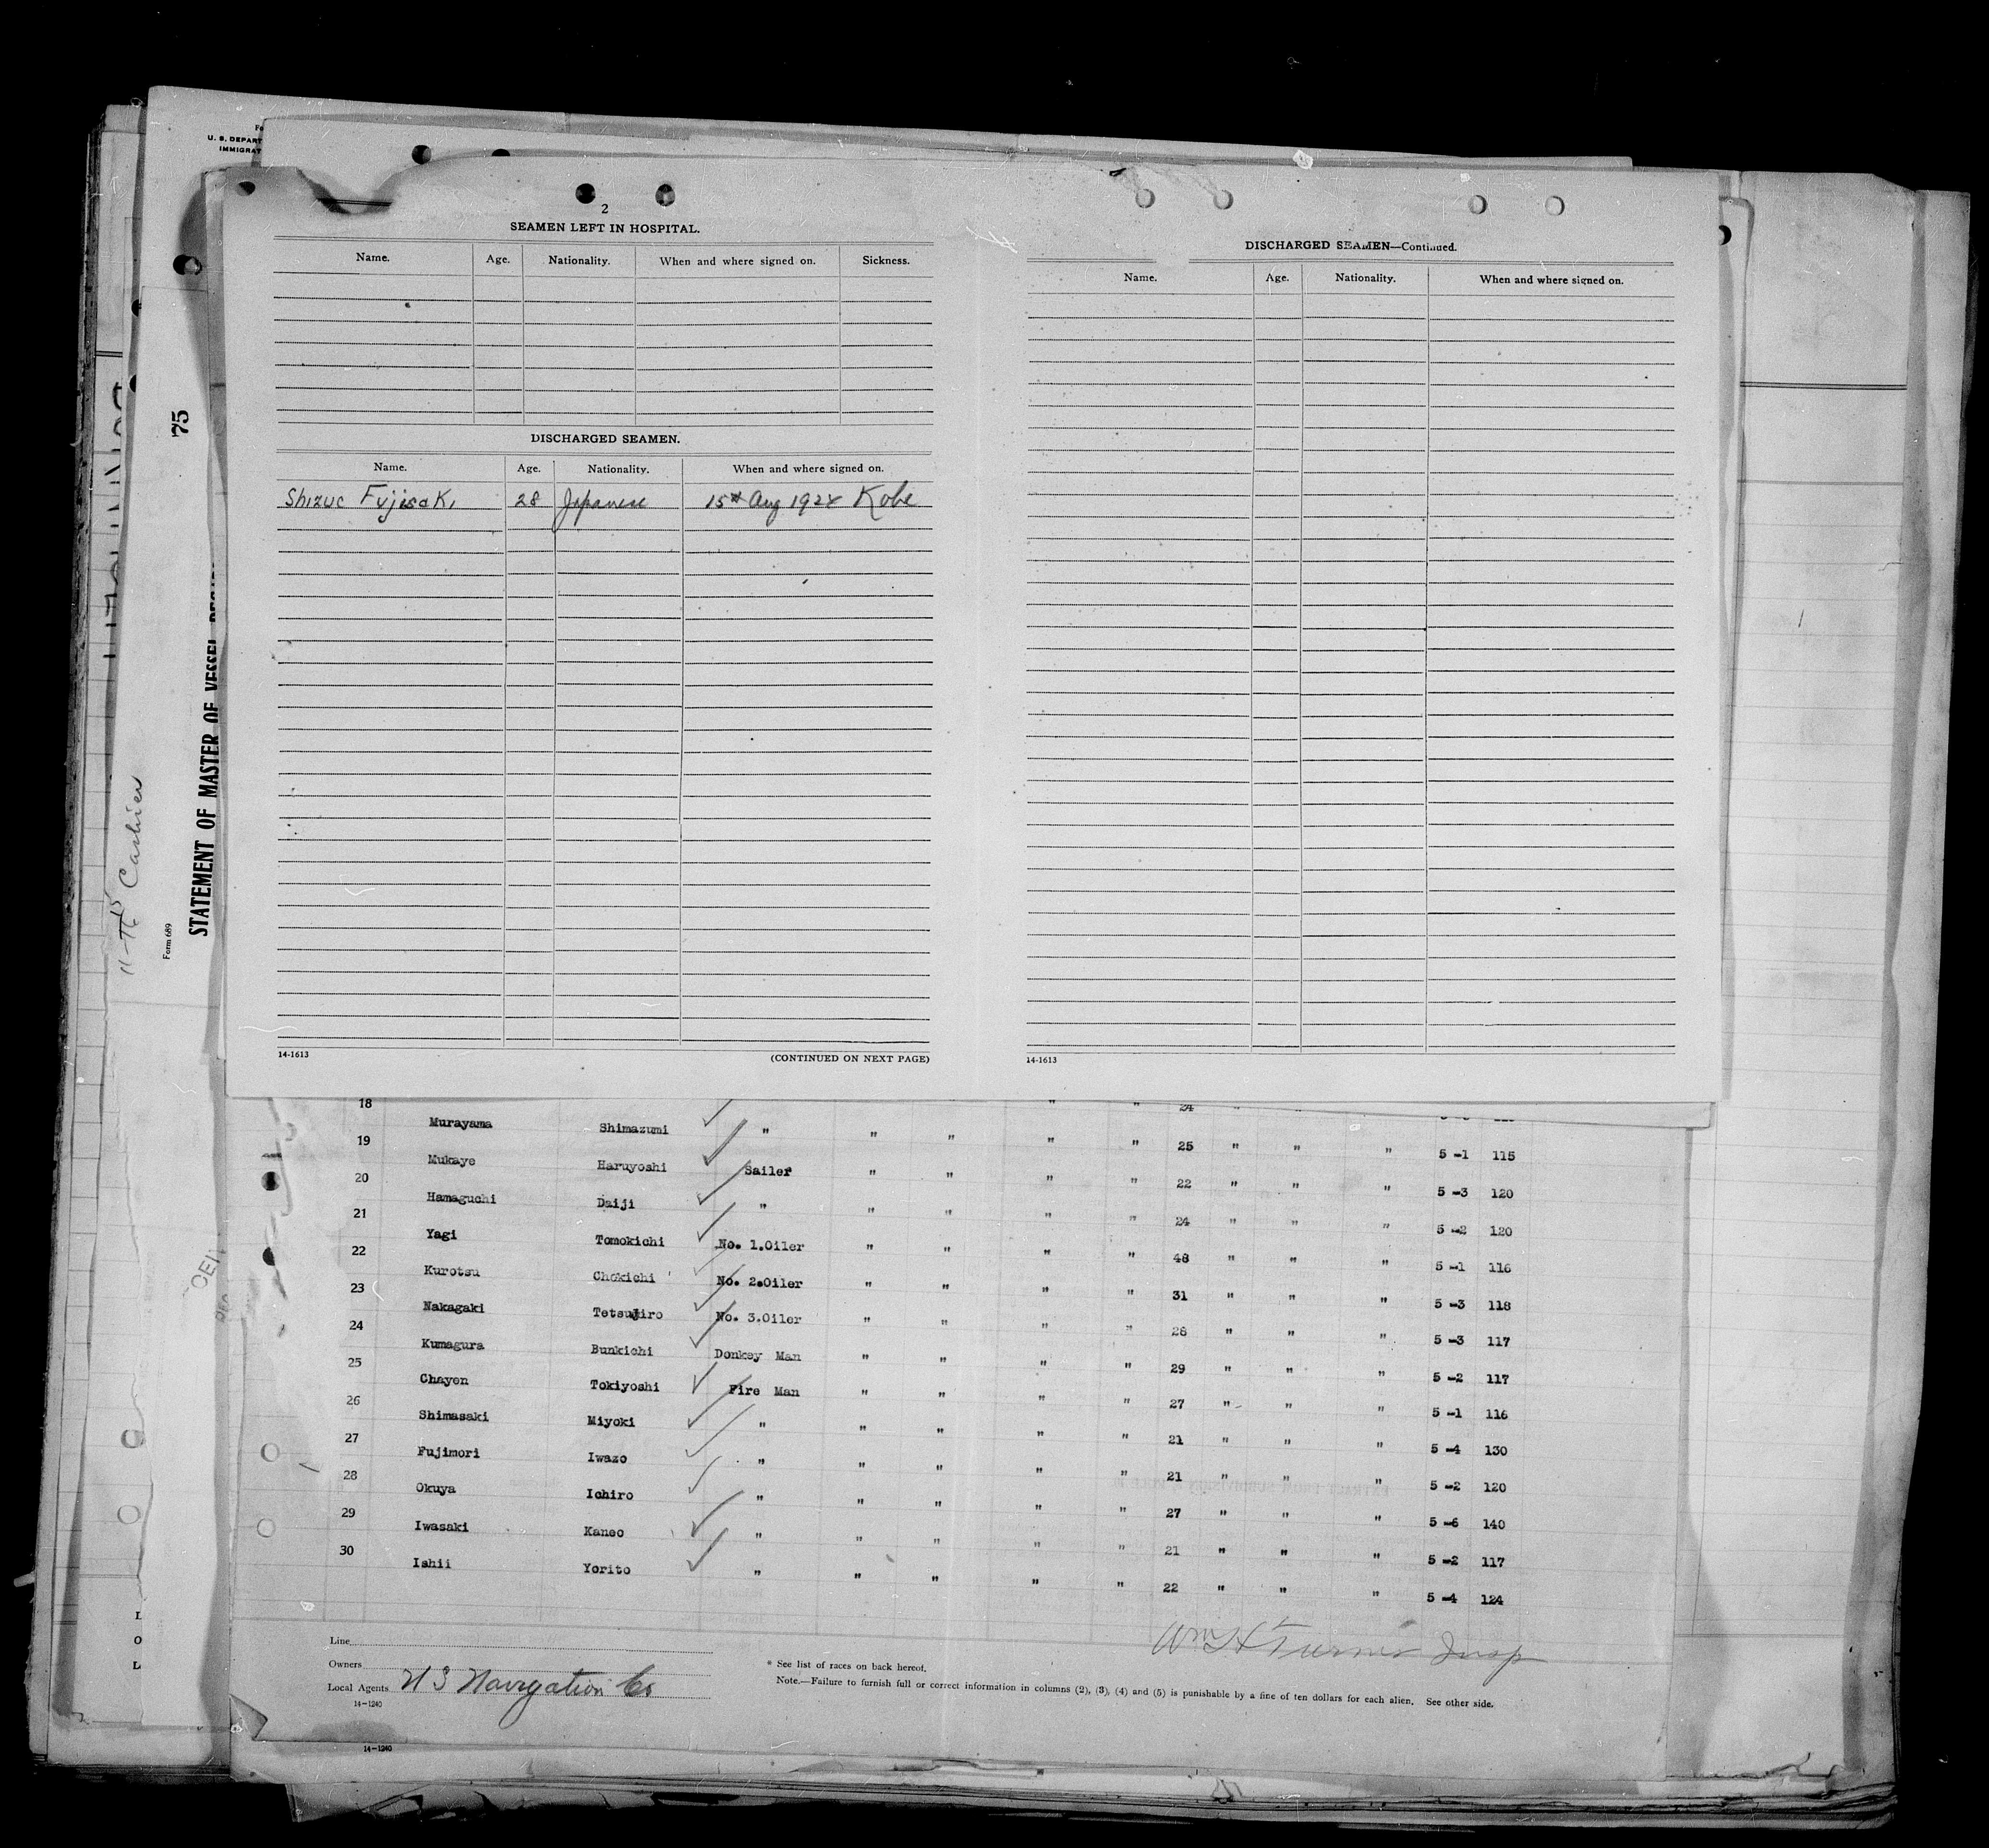 U. S. DEPART
IMMIGRAT
75
STATEMENT OF MASTER OF VESSEL
Form 689
Cashier
2
SEAMEN LEFT IN HOSPITAL.
Name. Age. Nationality. When and where signed on. Sickness.
DISCHARGED SEAMEN.
Name. Age. Nationality. When and where signed on.
Shizuo Fujisaki 28 Japanese 15th Aug 1924 Kobe
14-1613 (CONTINUED ON NEXT PAGE)
DISCHARGED SEAMEN—Continued.
Name. Age. Nationality. When and where signed on.
14-1613
18 " " 24 "
Murayama Shimazumi " " " " " 25 " " " 5-1 115
19
Mukaye Haruyoshi Sailer " " " " 22 " " " 5-3 120
20
Hamaguchi Daiji " " " " " 24 " " " 5-2 120
21
Yagi Tomokichi No. 1.Oiler " " " " 48 " " " 5-1 116
22
Kurotsu Chokichi No. 2.Oiler " " " " 31 " " " 5-3 118
23
Nakagaki Tetsujiro No. 3.Oiler " " " " 28 " " " 5-3 117
24
Kumagura Bunkichi Donkey Man " " " " 29 " " " 5-2 117
25
Chayen Tokiyoshi Fire Man " " " " 27 " " " 5-1 116
26
Shimasaki Miyoki " " " " " 21 " " " 5-4 130
27
Fujimori Iwazo " " " " " 21 " " " 5-2 120
28
Okuya Ichiro " " " " " 27 " " " 5-6 140
29
Iwasaki Kaneo " " " " " 21 " " " 5-2 117
30
Ishii Yorito " " " " " 22 " " " 5-4 124
Wm H Turner Insp
Line
Owners
Local Agents U S Navigation Co
14-1240
* See list of races on back hereof.
Note.—Failure to furnish full or correct information in columns (2), (3), (4) and (5) is punishable by a fine of ten dollars for each alien. See other side.
14-1240